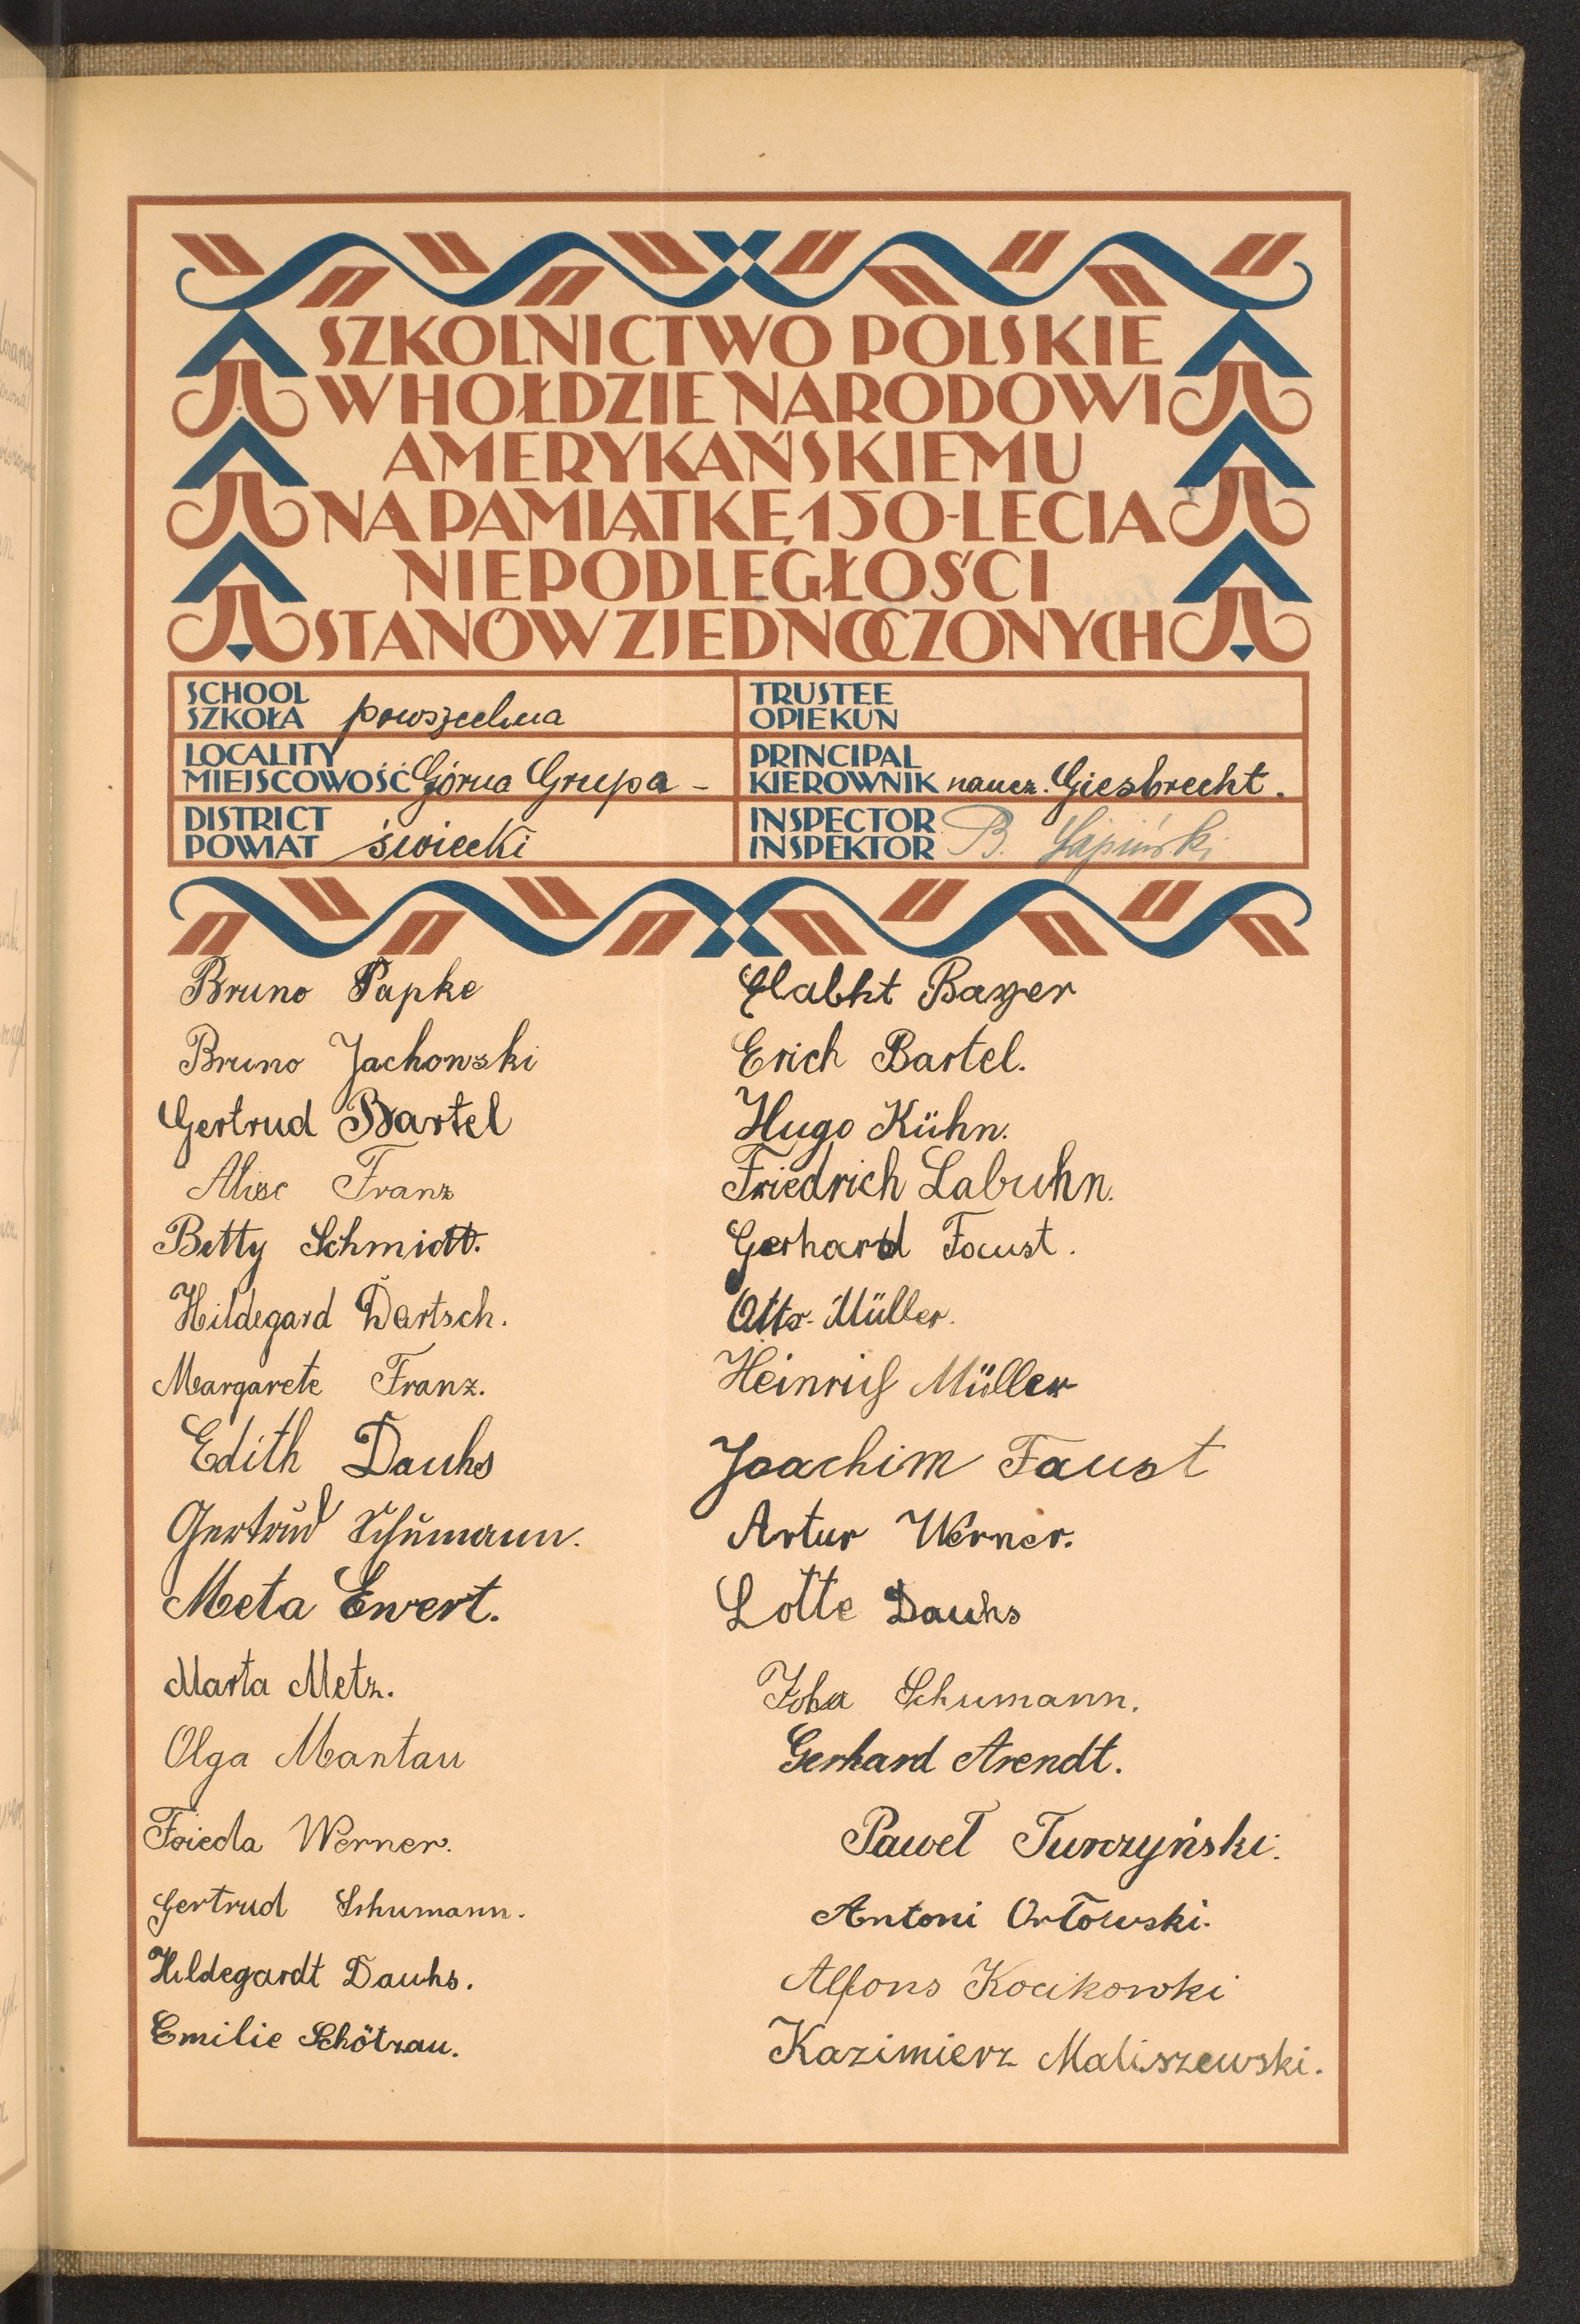 SZKOLNICTWO POLSKIE
W HOŁDZIE NARODOWI
AMERYKAŃSKIEMU
NA PAMIĄTKĘ 150-LECIA
NIEPODLEGŁOŚCI
STANÓW ZJEDNOCZONYCH
SCHOOL
SZKOŁA powszechna
TRUSTEE
OPIEKUN
LOCALITY
MIEJSCOWOŚĆ Górna Grupa -
PRINCIPAL
KIEROWNIK naucz. Giesbrecht.
DISTRICT
POWIAT świecki
INSPECTOR
INSPEKTOR B. Łapiński
Bruno Papke
Bruno Jachowski
Gertrud Bartel
Alise Franz
Betty Schmidt.
Hildegard Dartsch.
Margarete Franz.
Edith Dauhs
Gertrud Schumann.
Meta Ewert.
Marta Metz.
Olga Mantau
Frieda Werner.
Gertrud Schumann.
Hildegardt Dauhs.
Emilie Schötzau.
Bayer
Erich Bartel.
Hugo Kühn.
Friedrich Labuhn.
Gerhard Faust.
Otto Müller.
Heinrich Müller
Joachim Faust
Artur Werner.
Lotte Dauhs
Schumann.
Gerhard Arendt.
Paweł Turczyński.
Antoni Orłowski.
Alfons Kocikowki
Kazimierz Maliszewski.